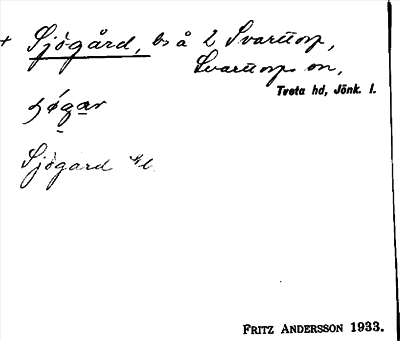 + Sjögård, bs å 2 Svarttorp,
Svarttorps sn,
Tveta hd, Jönk. l.
Sjögard
FRITZ ANDERSSON 1933.